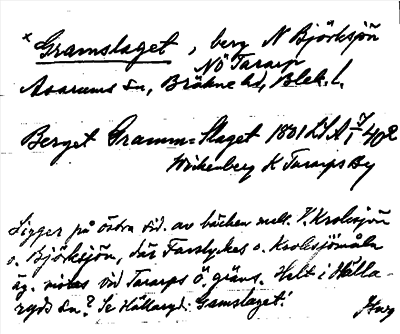 × Gramslaget, berg N Björksjön
NÖ Tararp
Asarums sn, Bräkne hd, Blek. l.
Berget Gramm=Slaget 1801 LSA 7/1 402
Wickenberg K Tararps By
Ligger på östra sid. av bäcken mell. V. Kroksjön
o. Björksjön, där Farslyckes o. Kroksjömåla
äg. mötas vid Tararps Ö. gräns. Helt i Halla-
ryds sn? Se Hallaryd: Gamslaget!